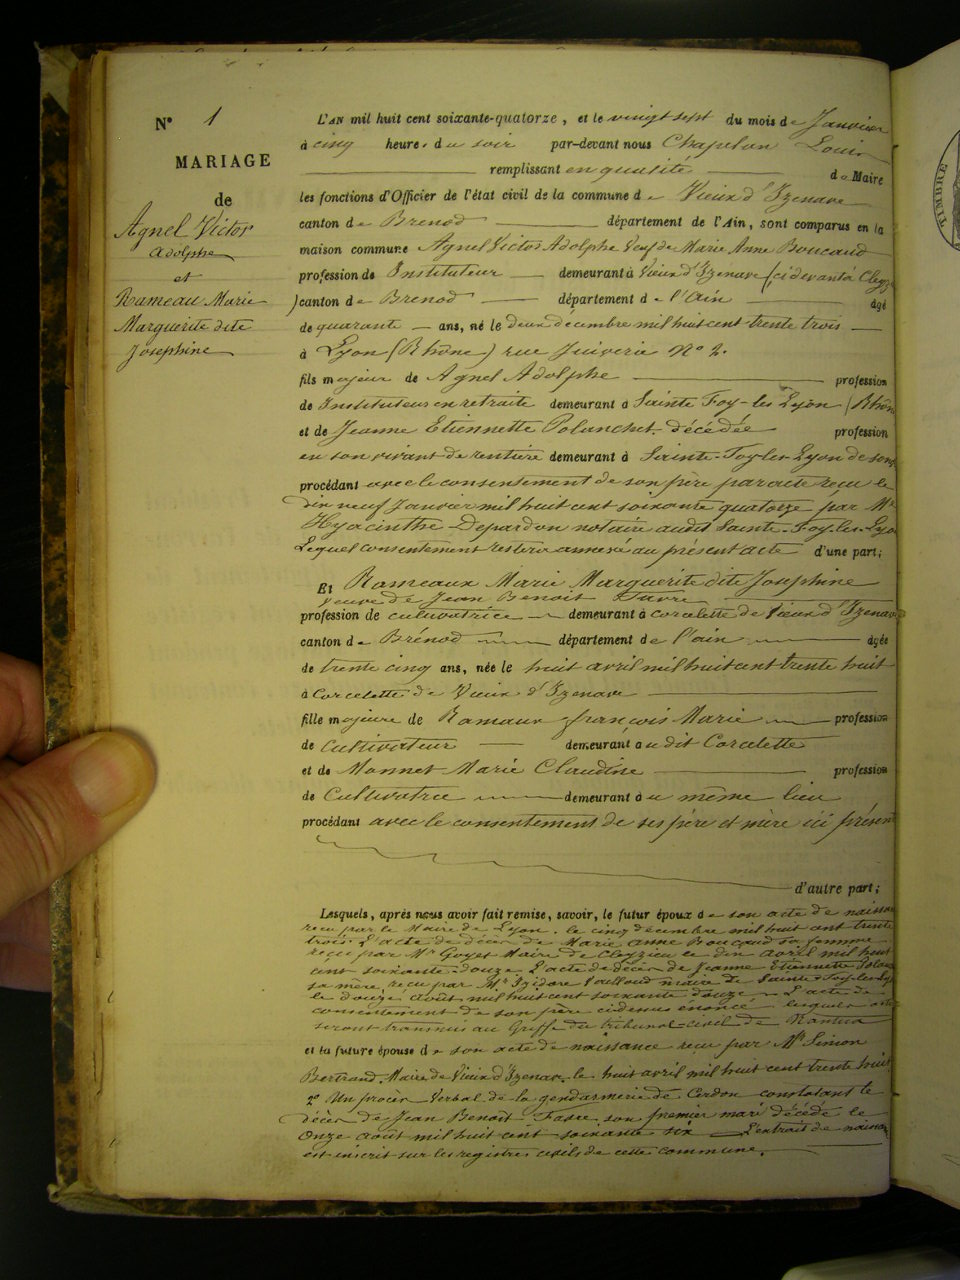 N° 1
MARIAGE
de
Agnel Victor
Adolphe
et
Rameau Marie
Marguerite dite
Josephine
L'AN mil huit cent soixante-quatorze, et le vingt sept du mois de Janvier
à cinq heures du soir par-devant nous Chapelun Louis
remplissant en qualité de Maire
les fonctions d'Officier de l'état civil de la commune de Vieux d'Izenave
canton de Brenod département de l'Ain, sont comparus en la
maison commune Agnel Victor Adolphe Veuf de Marie Anne Boucaud
profession de Instituteur demeurant à Vieux d'Izenave (ci devant à
canton de Brenod département de l'ain âgé
de quarante ans, né le deux décembre mil huit cent trente trois
à Lyon (Rhône) rue Juiverie N° 2.
fils majeur de Agnel Adolphe profession
de Instituteur en retraite demeurant à Sainte Foy-les Lyon (Rhône
et de Jeanne Etiennette Polanchet décédée profession
en son vivant de rentière demeurant à Sainte-Foy-les-Lyon de
procédant avec le consentement de son père par acte reçu le
dix neuf Janvier mil huit cent soixante quatorze par Me
Hyacinthe Depardon notaire audit Sainte-Foy-les-Lyon
Lequel consentement restera annexé au présent acte d'une part;
Et Rameaux Marie Marguerite dite Josephine
veuve de Jean Benoit Favre
profession de cultivatrice demeurant à corcelette de Vieux d'Izenave
canton de Brénod département de l'ain âgée
de trente cinq ans, née le huit avril mil huit cent trente huit
à Corcelette de Vieux d'Izenave
fille majeure de Ramaux françois Marie profession
de Cultivateur demeurant audit Corcelette
et de Monnet Marie Claudine profession
de Cultivatrice demeurant au même lieu
procédant avec le consentement de ses père et mère ici présent
d'autre part;
Lesquels, après nous avoir fait remise, savoir, le futur époux de son acte de
reçu par le Maire de Lyon, le cinq décembre mil huit cent trente
trois. L'acte de décès de Marie Anne Boucaud sa femme
reçu par Mr Goyet Maire de Cleyzieu le dix avril mil huit
cent soixante-douze L'acte de décès de Jeanne Etiennette
sa mère, reçu par Mr Izidore maire de Sainte-Foy-les-Lyon
le douze août mil huit cent soixante douze L'acte de
consentement de son père cidessus énoncé lesquels
seront transmis au Greffe du tribunal civil de Nantua
et la future épouse de son acte de naissance reçu par Mr Simon
Bertrand Maire de Vieux d'Izenave le huit avril mil huit cent trente huit
2° Un procès Verbal de la gendarmerie de Cerdon constatant le
décès de Jean Benoit Favre son premier mari décédé le
Onze août mil huit cent soixante six L'extrait de
est inscrit sur les registres civils de cette commune.
TIMBRE